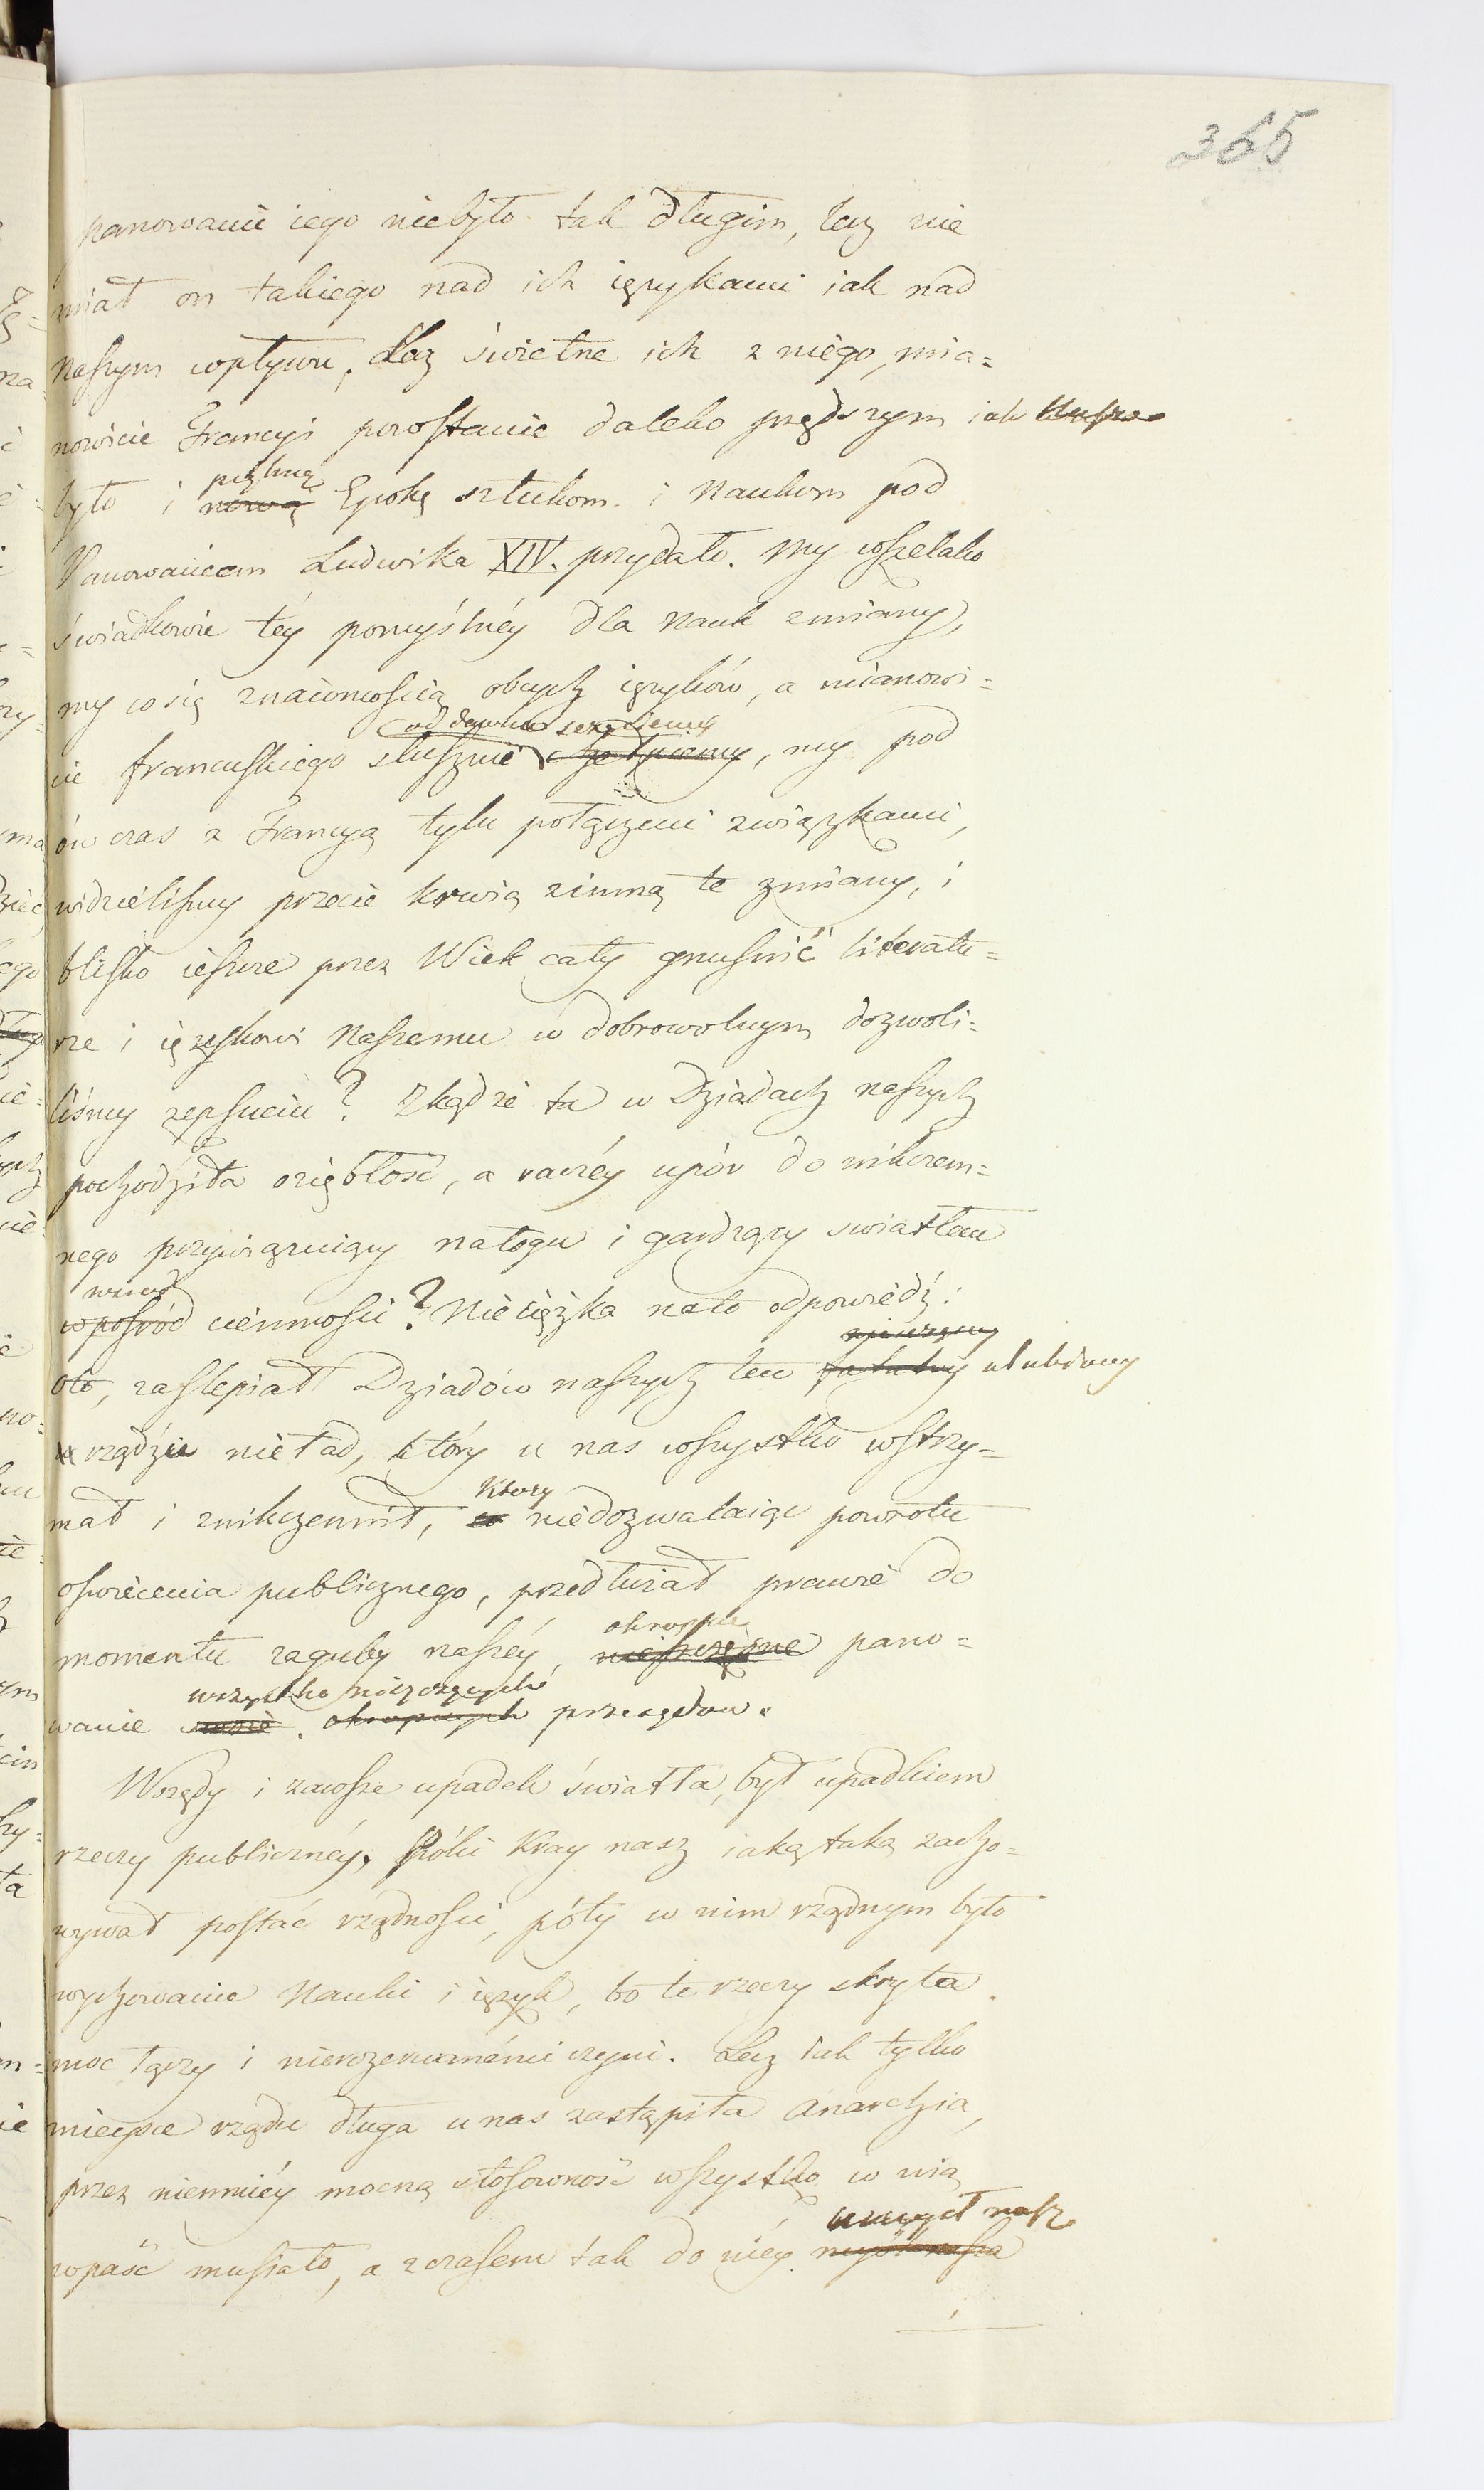 365
panowanie iego niebyło tak długim, lecz nie
miał on takiego nad ich ięzykami iak nad
naszym wpływu. Lecz świetne ich z niego, mia=
nowicie Francyi powstanie daleko prędszym iak
piękną
było i nową Epokę sztukom i Naukom pod
Panowaniem Ludwika XIV. przydało. My wszelako
świadkowie téy pomyślnéy dla Nauk zmiany,
my co się znaiomością obcych ięzyków, a mianowi=
od dawna szczyciemy
cie francuskiego słusznie chełpiemy, my pod
ów czas z Francyą tylu połączeni związkami,
widzieliśmy przecie krwią zimną te zmiany, i
blisko ieszcze przez Wiek cały gnuśnić literatu=
rze i ięzykowi Naszemu w dobrowolnym dozwoli=
liśmy zepsuciu? Zkądże ta w Dziadach naszych
pochodziła oziębłość, a raczéy upór do nikczem=
nego przywiązuiący nałogu i gardzący swiatłem
wśrod
wpośród ciemności? Nie ciężka nato odpowiedź:
oto, zaslepiał Dziadów naszych ten fatalny ulubiony
w rządzie nieład, który u nas wszystko wstrzy=
mał i znikczemnił, który
w niedozwalaiąc powrotu
oświecenia publicznego, przedłużał prawie do
okropne
momentu zaguby naszéy, nieszczęsne pano=
wszystko niszczących
wanie okropnych przesądow.
Wszędy i zawsze upadek światła, był upadkiem
rzeczy publicznéy. Póki Kray nasz iaką taką zacho=
wywał postać rządności, póty w nim rządnym było
wychowanie Nauki i ięzyk, bo te rzeczy skryta
moc łączy i nierozerwanémi czyni. Lecz iak tylko
mieysce rządu długa u nas zastąpiła Anarchia,
przez niemniéy mocną stosowność wszystko w nią
umysł nasz
wpaść musiało, a z czasem tak do niéy myśl nasza